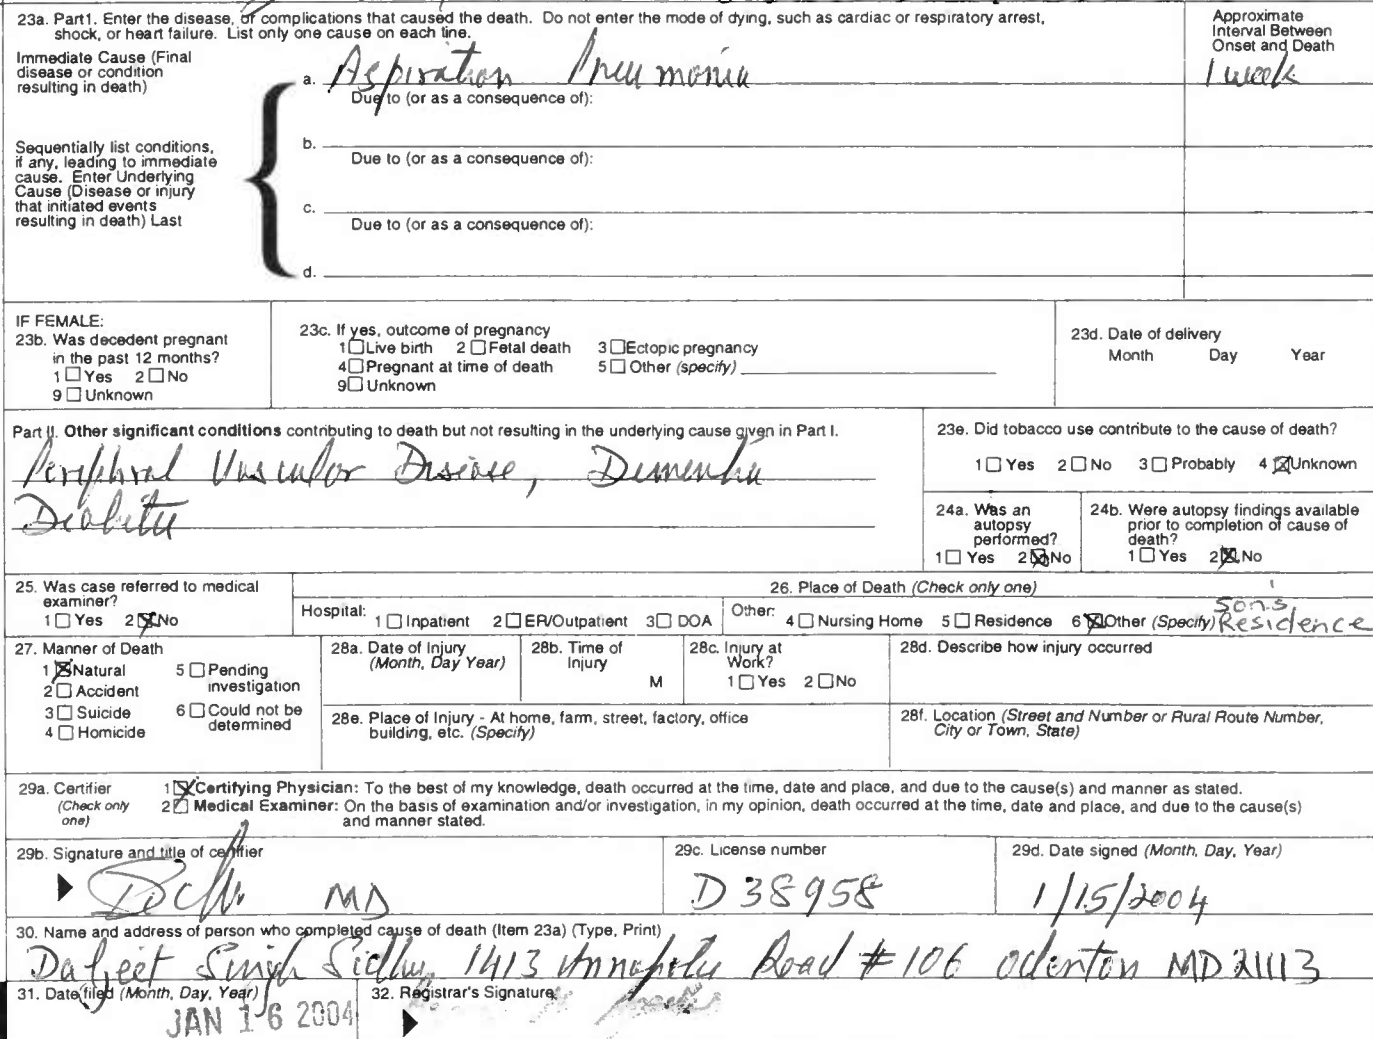 23a. Part1. Enter the disease, or complications that caused the death. Do not enter the mode of dying, such as cardiac or respiratory arrest,
shock, or heart failure. List only one cause on each line.
Approximate
Interval Between
Onset and Death
Immediate Cause (Final
disease or condition
resulting in death)
a. Aspiration Pneumonia
1 week
Due to (or as a consequence of):
Sequentially list conditions,
if any, leading to immediate
cause. Enter Underlying
Cause (Disease or injury
that initiated events
resulting in death) Last
b.
Due to (or as a consequence of):
c.
Due to (or as a consequence of):
d.
IF FEMALE:
23b. Was decedent pregnant
in the past 12 months?
1 ☐ Yes 2 ☐ No
9 ☐ Unknown
23c. If yes, outcome of pregnancy
1 ☐ Live birth 2 ☐ Fetal death 3 ☐ Ectopic pregnancy
4 ☐ Pregnant at time of death 5 ☐ Other (specify)
9 ☐ Unknown
23d. Date of delivery
Month Day Year
Part II. Other significant conditions contributing to death but not resulting in the underlying cause given in Part I.
Periphral Vascular Disease, Dementia
Diabites
23e. Did tobacco use contribute to the cause of death?
1 ☐ Yes 2 ☐ No 3 ☐ Probably 4 ☒ Unknown
24a. Was an
autopsy
performed?
1 ☐ Yes 2 ☒ No
24b. Were autopsy findings available
prior to completion of cause of
death?
1 ☐ Yes 2 ☒ No
25. Was case referred to medical
examiner?
1 ☐ Yes 2 ☒ No
26. Place of Death (Check only one)
Hospital: 1 ☐ Inpatient 2 ☐ ER/Outpatient 3 ☐ DOA Other: 4 ☐ Nursing Home 5 ☐ Residence 6 ☒ Other (Specify) son's
Residence
27. Manner of Death
1 ☒ Natural 5 ☐ Pending
investigation
2 ☐ Accident
3 ☐ Suicide 6 ☐ Could not be
determined
4 ☐ Homicide
28a. Date of Injury
(Month, Day Year)
28b. Time of
Injury
M
28c. Injury at
Work?
1 ☐ Yes 2 ☐ No
28d. Describe how injury occurred
28e. Place of Injury - At home, farm, street, factory, office
building, etc. (Specify)
28f. Location (Street and Number or Rural Route Number,
City or Town, State)
29a. Certifier
(Check only
one)
1 ☒ Certifying Physician: To the best of my knowledge, death occurred at the time, date and place, and due to the cause(s) and manner as stated.
2 ☐ Medical Examiner: On the basis of examination and/or investigation, in my opinion, death occurred at the time, date and place, and due to the cause(s)
and manner stated.
29b. Signature and title of certifier
MD
29c. License number
D 38958
29d. Date signed (Month, Day, Year)
1/15/2004
30. Name and address of person who completed cause of death (Item 23a) (Type, Print)
Daljeet Singh Sidhu 1413 Annapolis Road # 106 Odenton MD 21113
31. Date filed (Month, Day, Year)
JAN 16 2004
32. Registrar's Signature